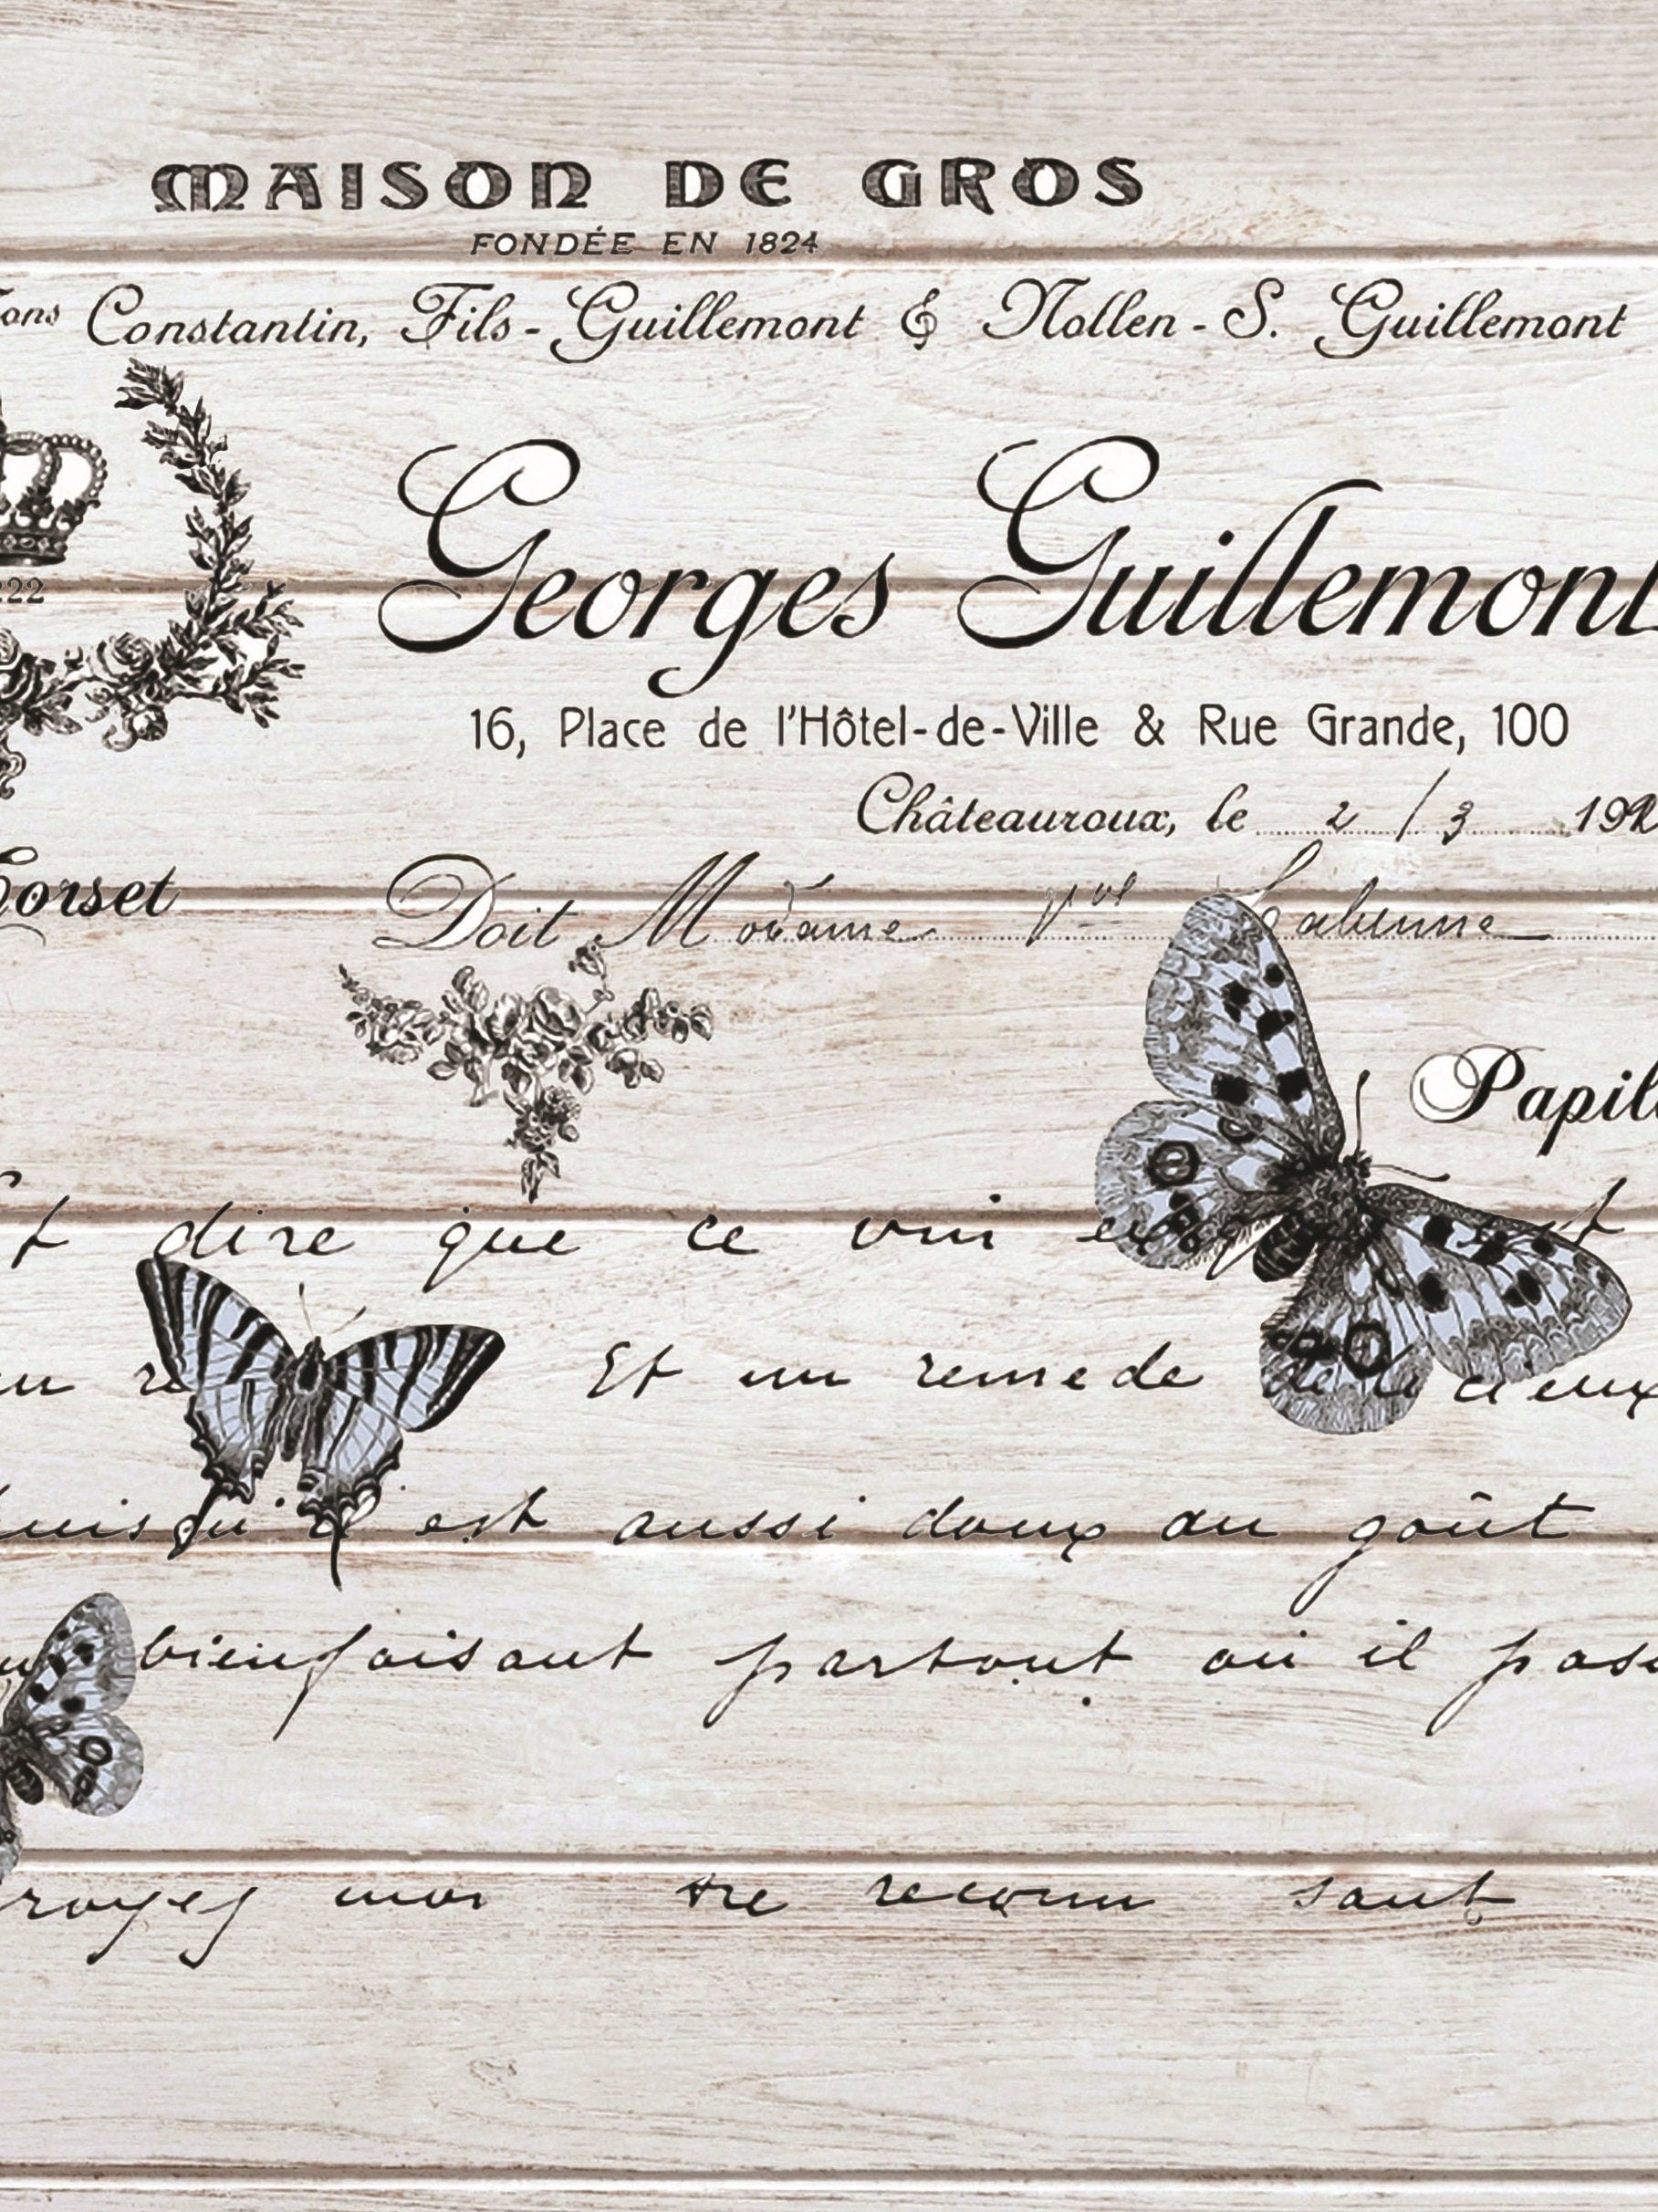 MAISON DE GROS
FONDÉE EN 1824
ons Constantin, Fils-Guillemont & Nollen-S. Guillemont
Georges Guillemont
22
16, Place de l'Hôtel-de-Ville & Rue Grande, 100
Châteauroux, le 2/3 192
Corset
Doit Madame
Papil
t dire que ce vin es
Et un remede de
puisqu'il est aussi doux au goût
bienfaisant partout où il pass
royez moi tre reconn sant